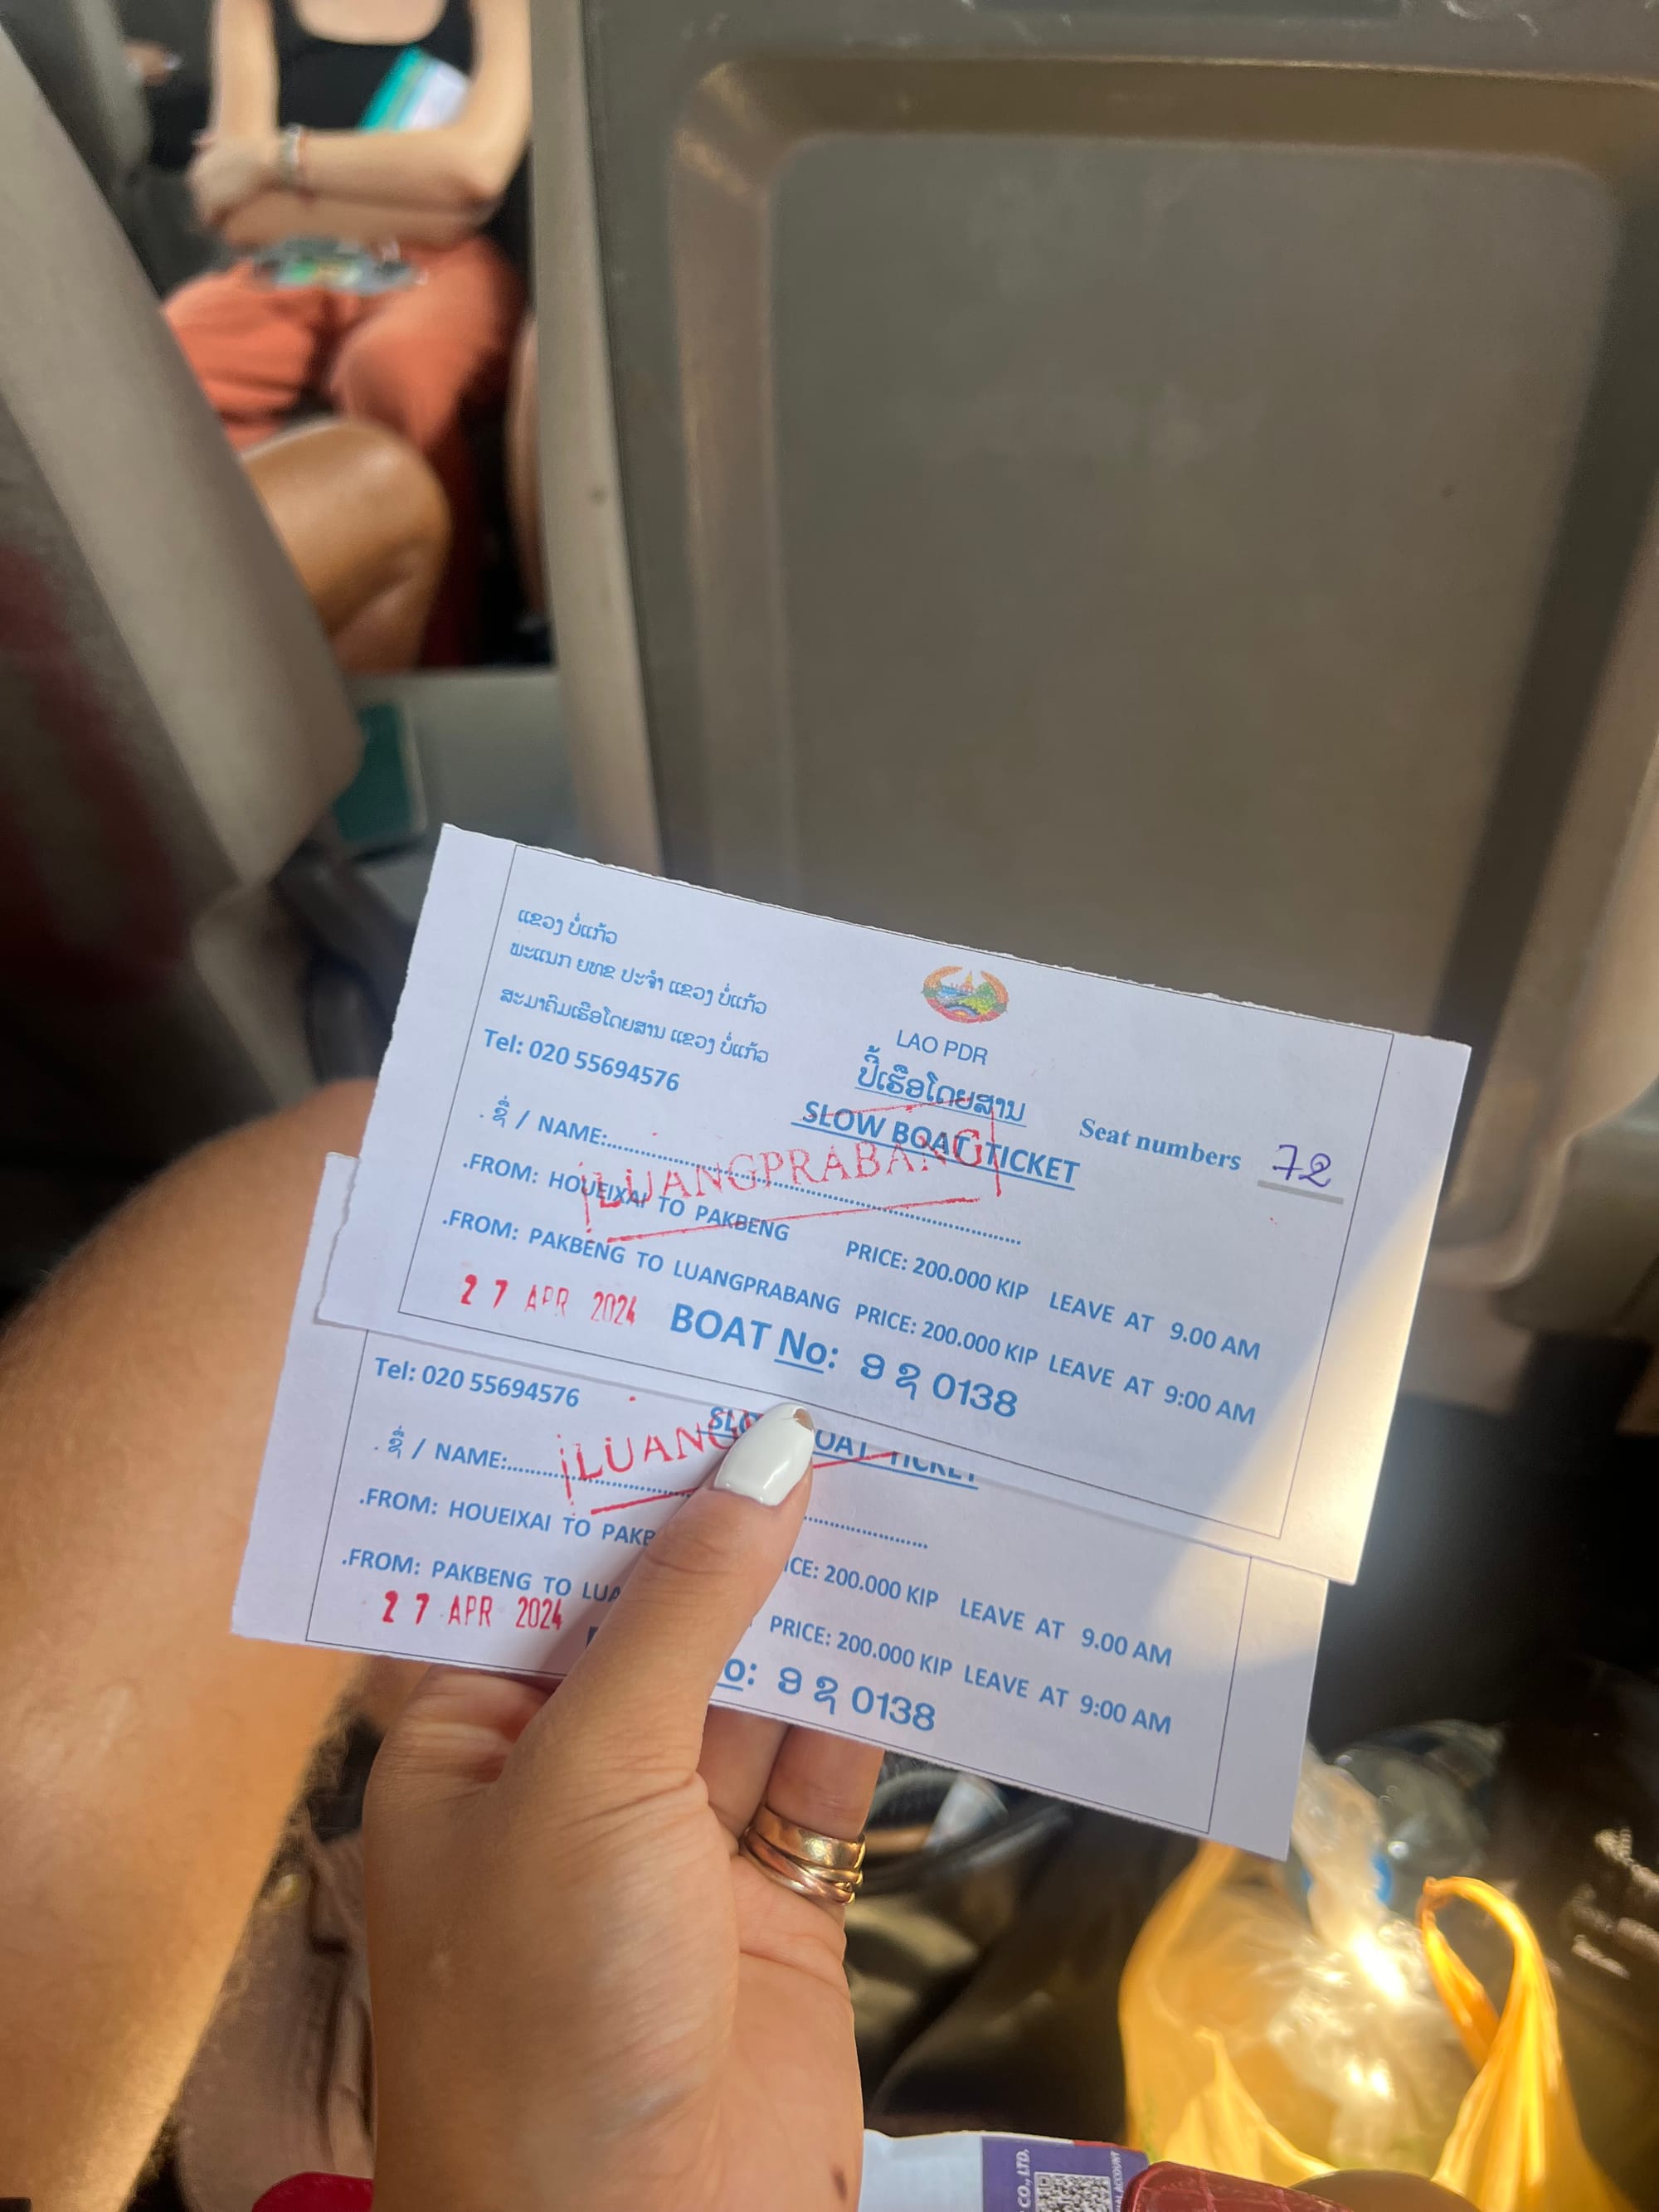 ແຂວງ ບໍ່ແກ້ວ
ພະແນກ ຍທຂ ປະຈຳ ແຂວງ ບໍ່ແກ້ວ
ສະມາຄົມເຮືອໂດຍສານ ແຂວງ ບໍ່ແກ້ວ
Tel: 020 55694576
LAO PDR
ປີ້ເຮືອໂດຍສານ
SLOW BOAT TICKET
Seat numbers 72
. ຊື່ / NAME:..........................................................
LUANGPRABANG
.FROM: HOUEIXAI TO PAKBENG PRICE: 200.000 KIP LEAVE AT 9.00 AM
.FROM: PAKBENG TO LUANGPRABANG PRICE: 200.000 KIP LEAVE AT 9:00 AM
27 APR 2024 BOAT No: ອ ຊ 0138
Tel: 020 55694576
TICKET
. ຊື່ / NAME:..........................................................
.FROM: HOUEIXAI TO 200.000 KIP LEAVE AT 9.00 AM
.FROM: PAKBENG TO PRICE: 200.000 KIP LEAVE AT 9:00 AM
27 APR 2024 ອ ຊ 0138
CO., LTD.